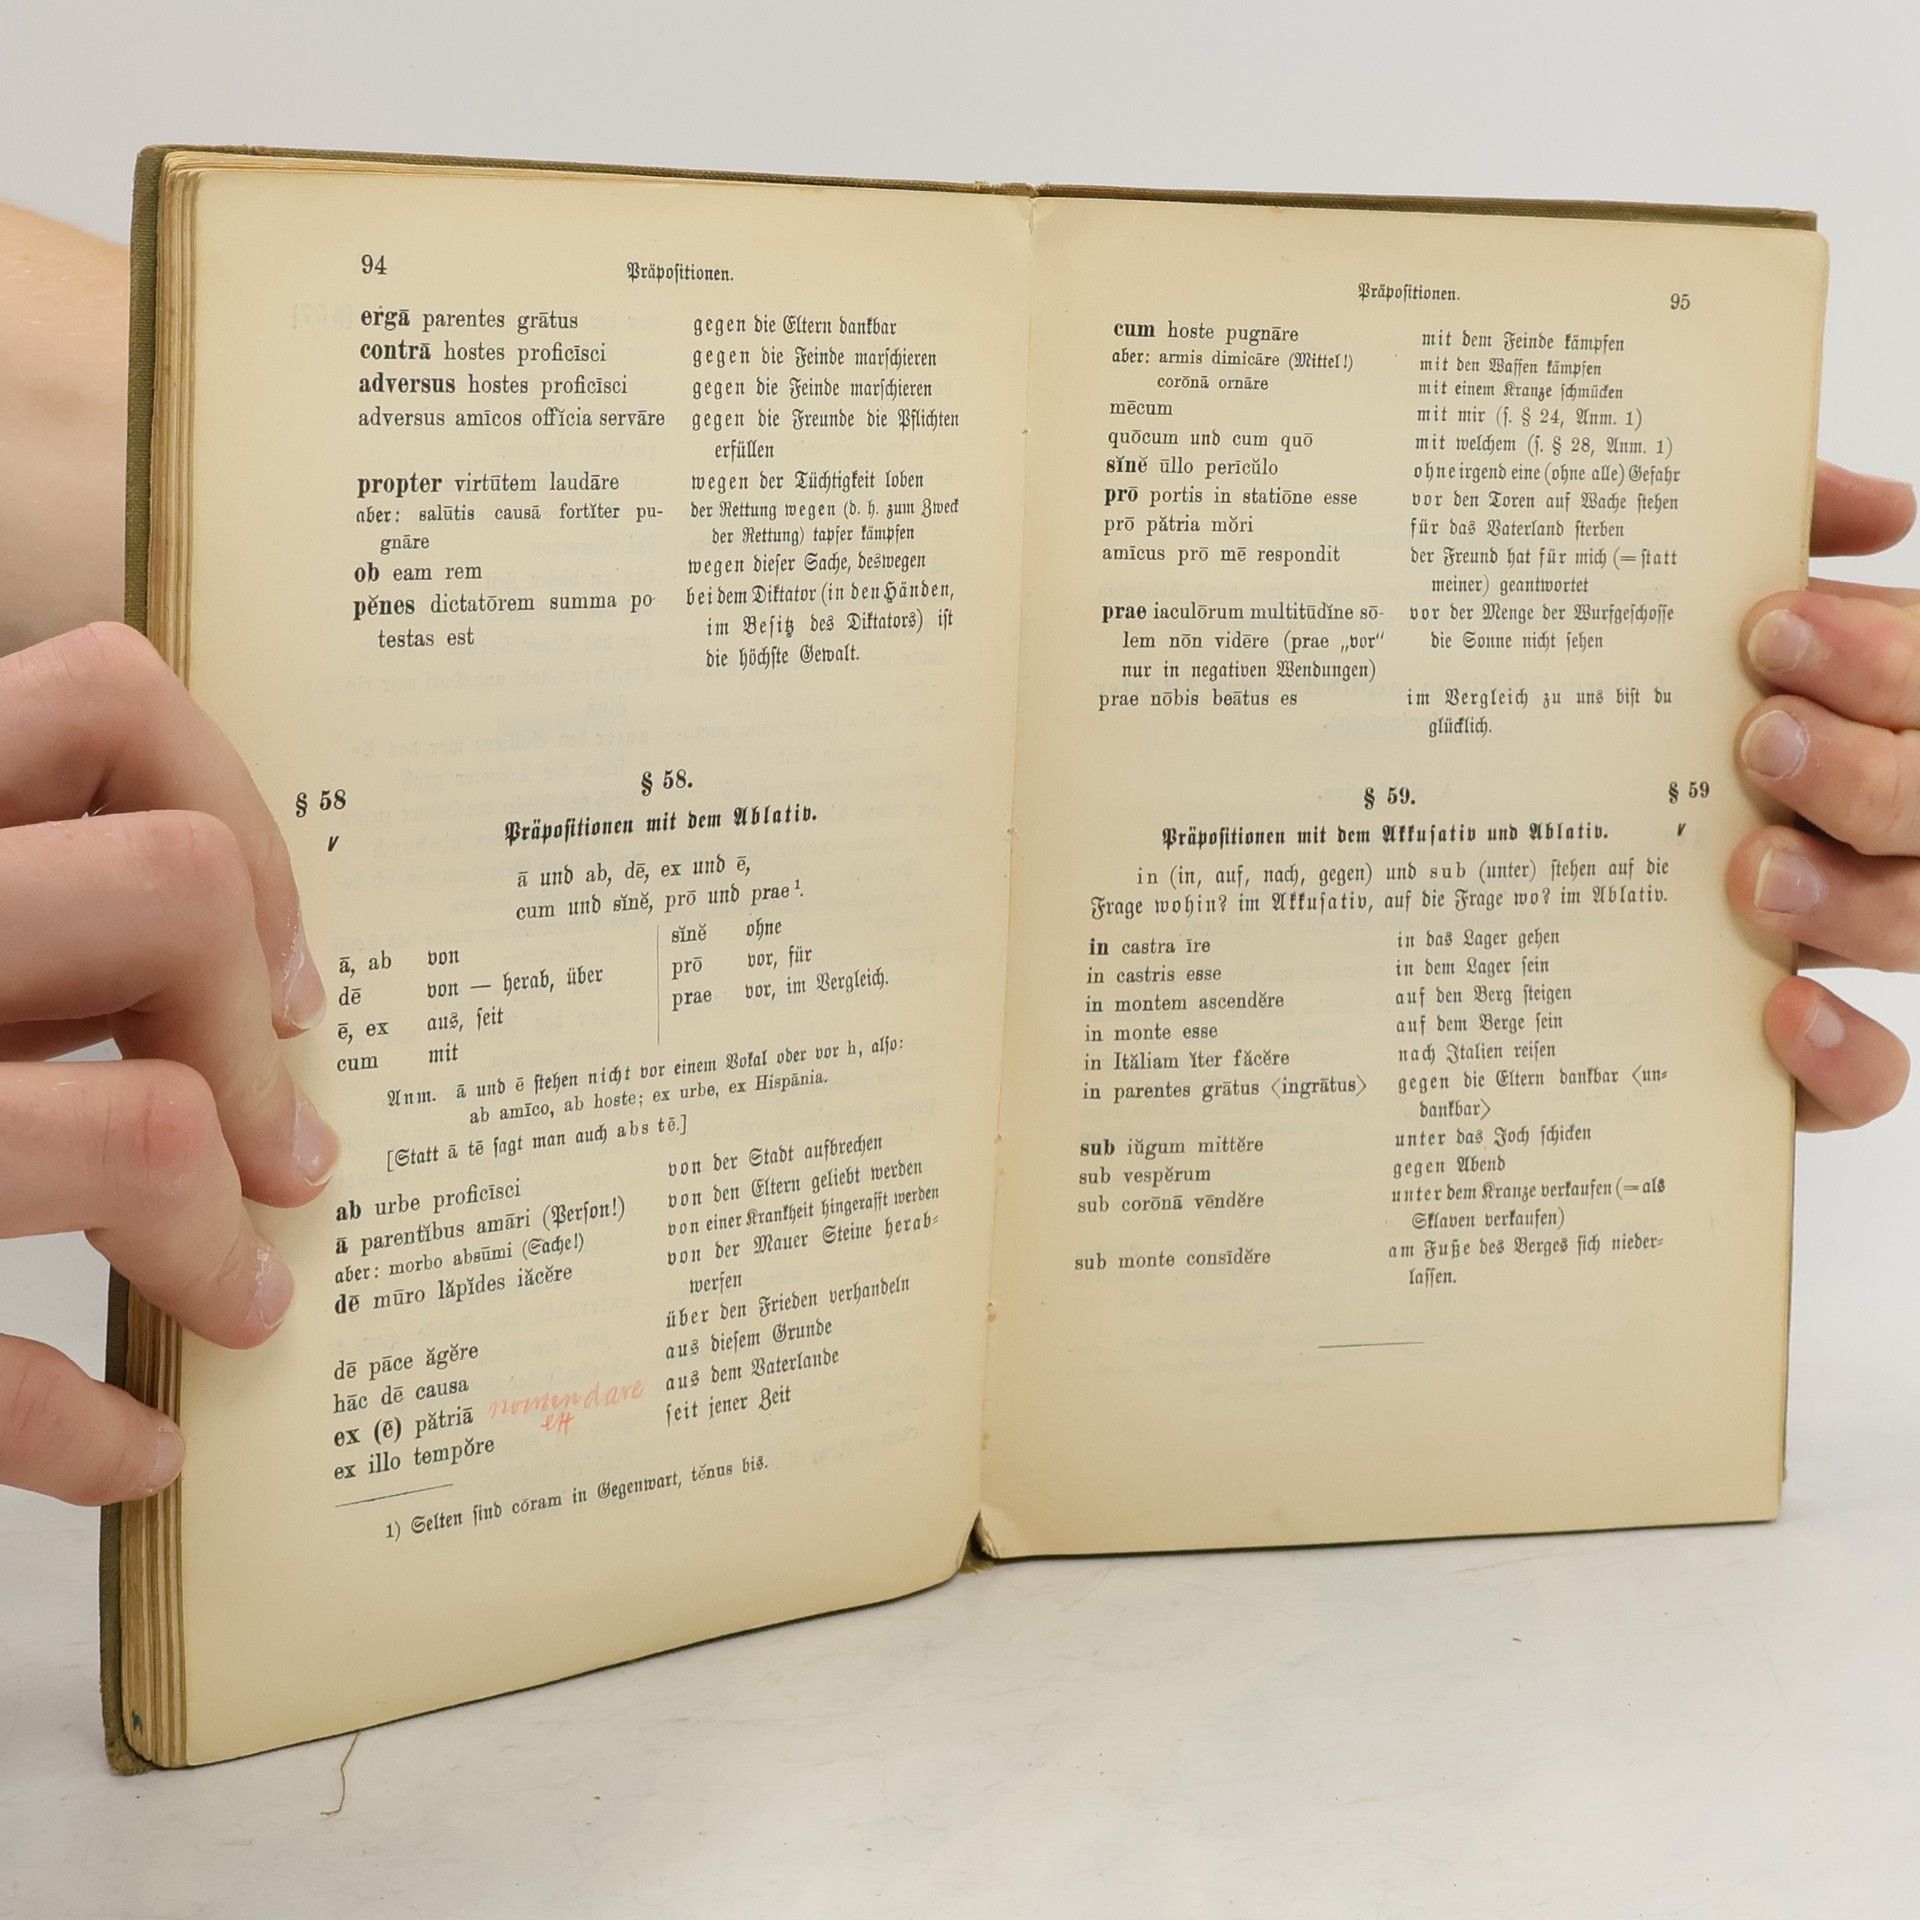 94
Präpoſitionen.
ergā parentes grātus gegen die Eltern dankbar
contrā hostes proficīsci gegen die Feinde marſchieren
adversus hostes proficīsci gegen die Feinde marſchieren
adversus amīcos offĭcia servāre gegen die Freunde die Pflichten
erfüllen
propter virtūtem laudāre wegen der Tüchtigkeit loben
aber: salūtis causā fortĭter pu- der Rettung wegen (d. h. zum Zweck
gnāre der Rettung) tapfer kämpfen
ob eam rem wegen dieſer Sache, deswegen
pĕnes dictatōrem summa po- bei dem Diktator (in den Händen,
testas est im Beſitz des Diktators) iſt
die höchſte Gewalt.
§ 58 § 58.
v
Präpoſitionen mit dem Ablativ.
ā und ab, dē, ex und ē,
cum und sĭnĕ, prō und prae¹.
ā, ab von
dē von — herab, über
ē, ex aus, ſeit
cum mit
sĭnĕ ohne
prō vor, für
prae vor, im Vergleich.
Anm. ā und ē ſtehen nicht vor einem Vokal oder vor h, alſo:
ab amīco, ab hoste; ex urbe, ex Hispānia.
[Statt ā tē ſagt man auch abs tē.]
ab urbe proficīsci von der Stadt aufbrechen
ā parentĭbus amāri (Perſon!) von den Eltern geliebt werden
aber: morbo absūmi (Sache!) von einer Krankheit hingerafft werden
dē mūro lăpĭdes iăcĕre von der Mauer Steine herab-
werfen
dē pāce ăgĕre über den Frieden verhandeln
hāc dē causa aus dieſem Grunde
ex (ē) pătriā aus dem Vaterlande
nomen dare
ex illo tempŏre ſeit jener Zeit
1) Selten ſind cōram in Gegenwart, tĕnus bis.
Präpoſitionen.
95
cum hoste pugnāre mit dem Feinde kämpfen
aber: armis dimicāre (Mittel!) mit den Waffen kämpfen
corōnā ornāre mit einem Kranze ſchmücken
mēcum mit mir (ſ. § 24, Anm. 1)
quōcum und cum quō mit welchem (ſ. § 28, Anm. 1)
sĭnĕ ūllo perīcŭlo ohne irgend eine (ohne alle) Gefahr
prō portis in statiōne esse vor den Toren auf Wache ſtehen
prō pătria mŏri für das Vaterland ſterben
amīcus prō mē respondit der Freund hat für mich (= ſtatt
meiner) geantwortet
prae iaculōrum multitūdĭne sō- vor der Menge der Wurfgeſchoſſe
lem nōn vidēre (prae „vor“ die Sonne nicht ſehen
nur in negativen Wendungen)
prae nōbis beātus es im Vergleich zu uns biſt du
glücklich.
§ 59. § 59
v
Präpoſitionen mit dem Akkuſativ und Ablativ.
in (in, auf, nach, gegen) und sub (unter) ſtehen auf die
Frage wohin? im Akkuſativ, auf die Frage wo? im Ablativ.
in castra īre in das Lager gehen
in castris esse in dem Lager ſein
in montem ascendĕre auf den Berg ſteigen
in monte esse auf dem Berge ſein
in Ităliam ĭter făcĕre nach Italien reiſen
in parentes grātus ⟨ingrātus⟩ gegen die Eltern dankbar ⟨un-
dankbar⟩
sub iŭgum mittĕre unter das Joch ſchicken
sub vespĕrum gegen Abend
sub corōnā vēndĕre unter dem Kranze verkaufen (= als
Sklaven verkaufen)
sub monte consīdĕre am Fuße des Berges ſich nieder-
laſſen.